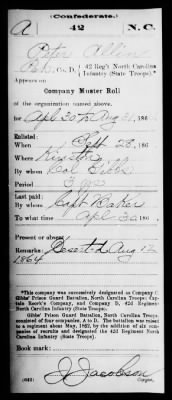 (Confederate.)
A 42 N.C.
Peter Allen
Pvt., Co. D, 42 Reg't North Carolina
Infantry (State Troops).*
Appears on
Company Muster Roll
of the organization named above,
for Apl 30 to Aug 31, 186
Enlisted:
When Sept 28, 186
Where Kinston
By whom Col Gibbs
Period 3 yrs
Last paid:
By whom Capt Baker
To what time Apl 30, 186
Present or absent
Remarks: Desert'd Aug 12
1864
*This company was successively designated as Company C,
Gibbs' Prison Guard Battalion, North Carolina Troops; Cap-
tain Company, and Company D, 42d Regiment
North Carolina Infantry (State Troops).
Gibbs' Prison Guard Battalion, North Carolina Troops,
consisted of four companies, A to D. The battalion was raised
to a regiment about May, 1862, by the addition of six com-
panies of recruits and designated the 42d Regiment North
Carolina Infantry (State Troops).
Book mark:
J. Jacobson
(642) Copyist.